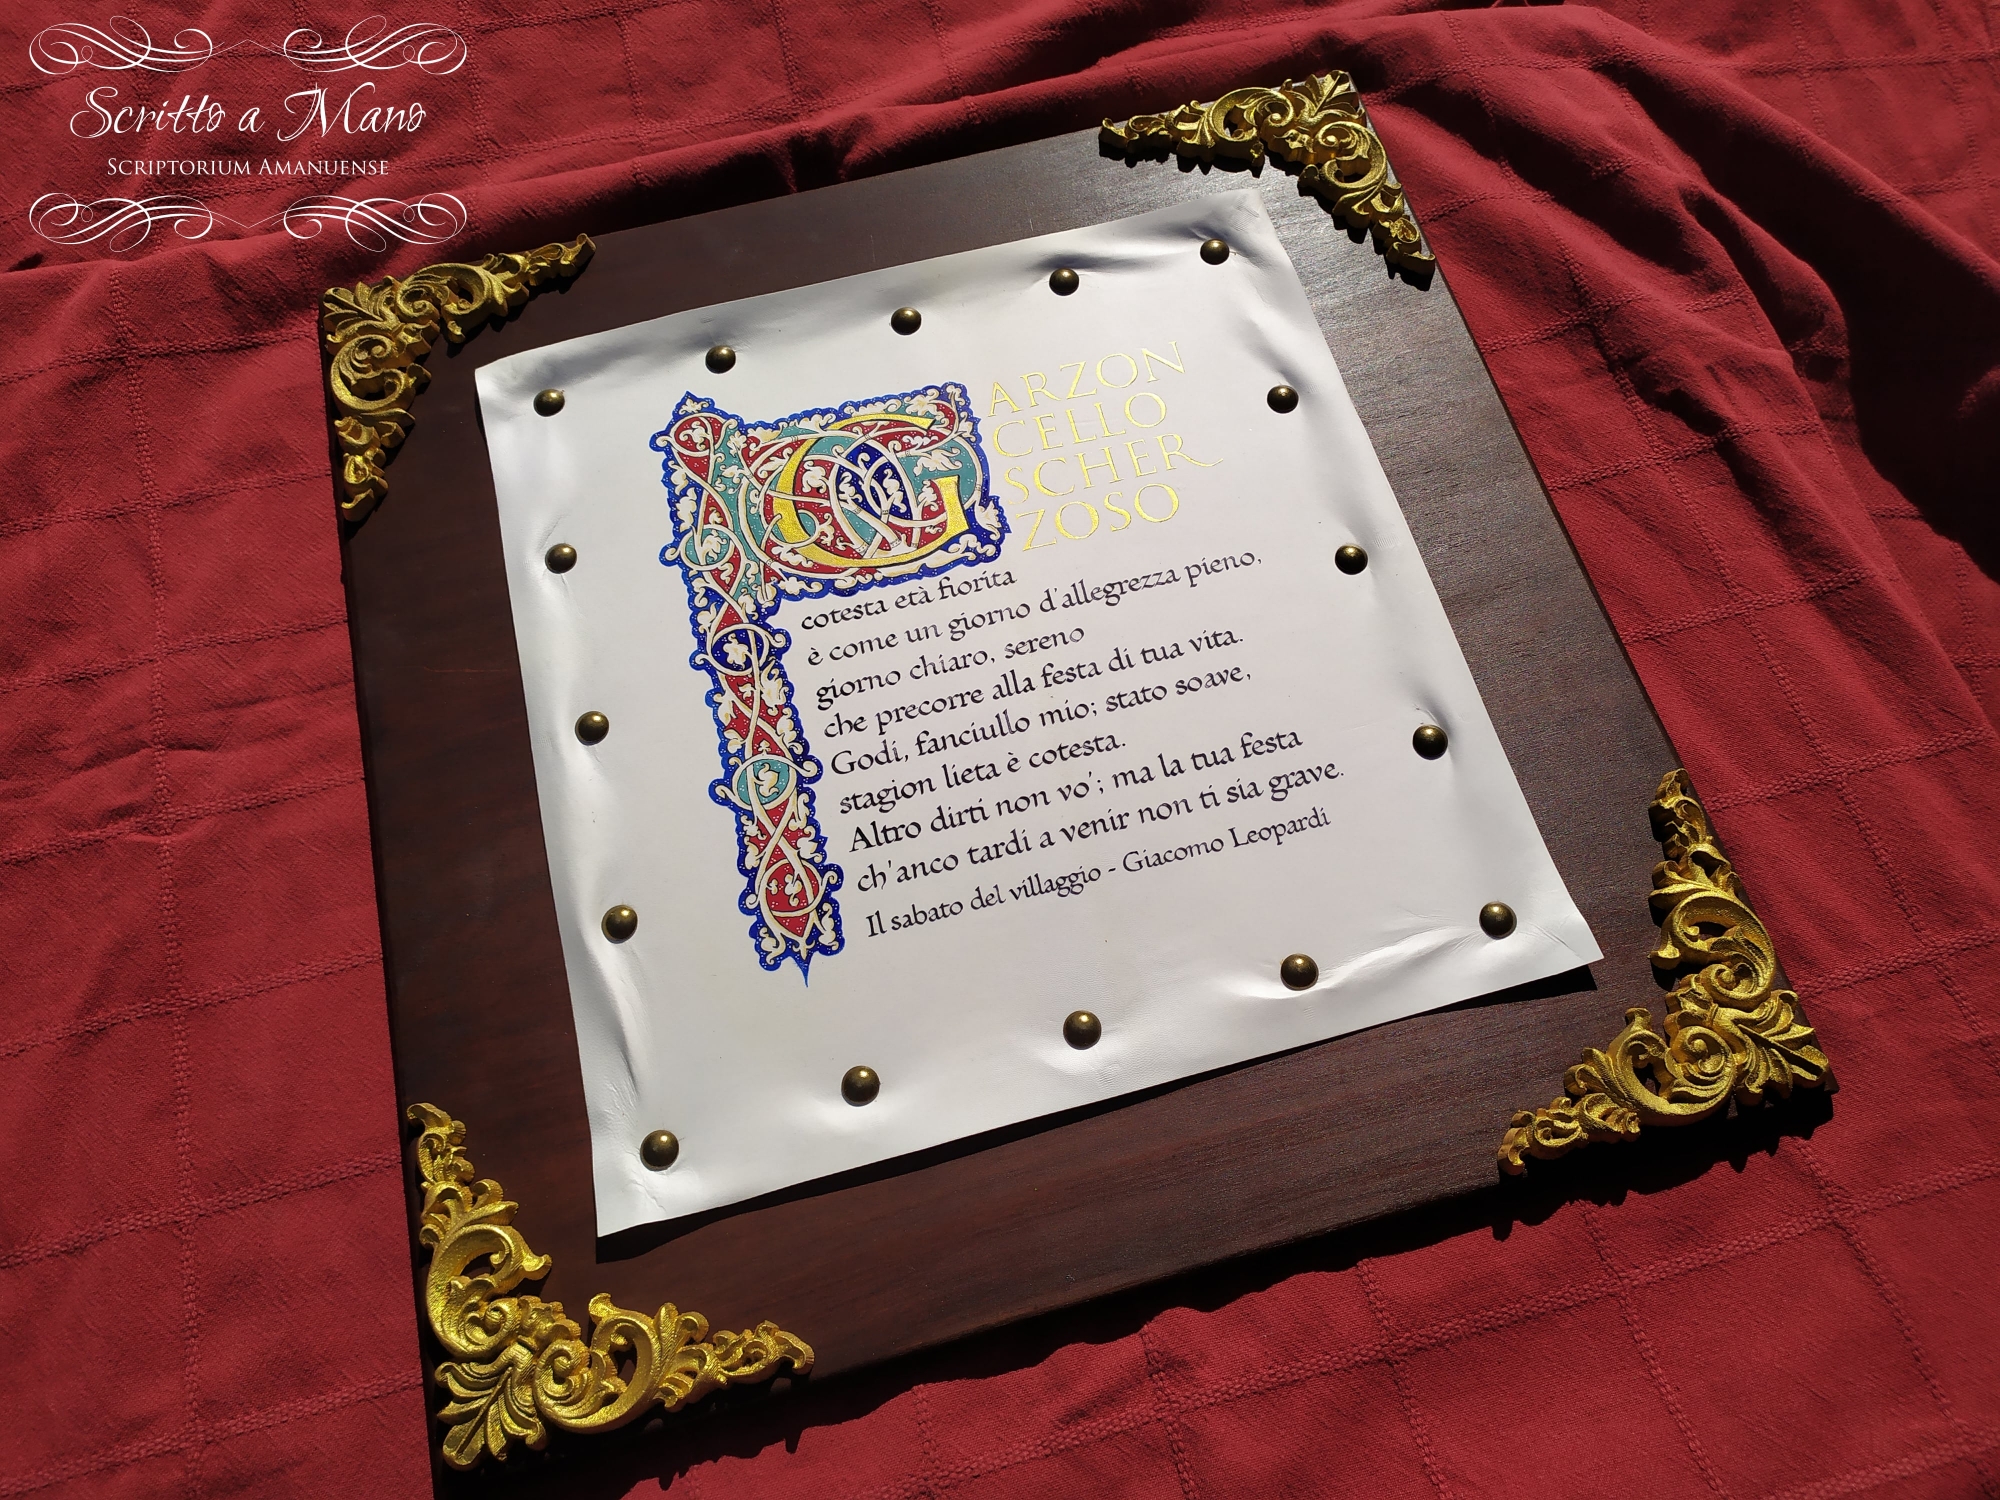 Scritto a Mano
SCRIPTORIUM AMANUENSE
G
ARZON
CELLO
SCHER
ZOSO
cotesta età fiorita
è come un giorno d'allegrezza pieno,
giorno chiaro, sereno
che precorre alla festa di tua vita.
Godi, fanciullo mio; stato soave,
stagion lieta è cotesta.
Altro dirti non vo'; ma la tua festa
ch'anco tardi a venir non ti sia grave.
Il sabato del villaggio - Giacomo Leopardi